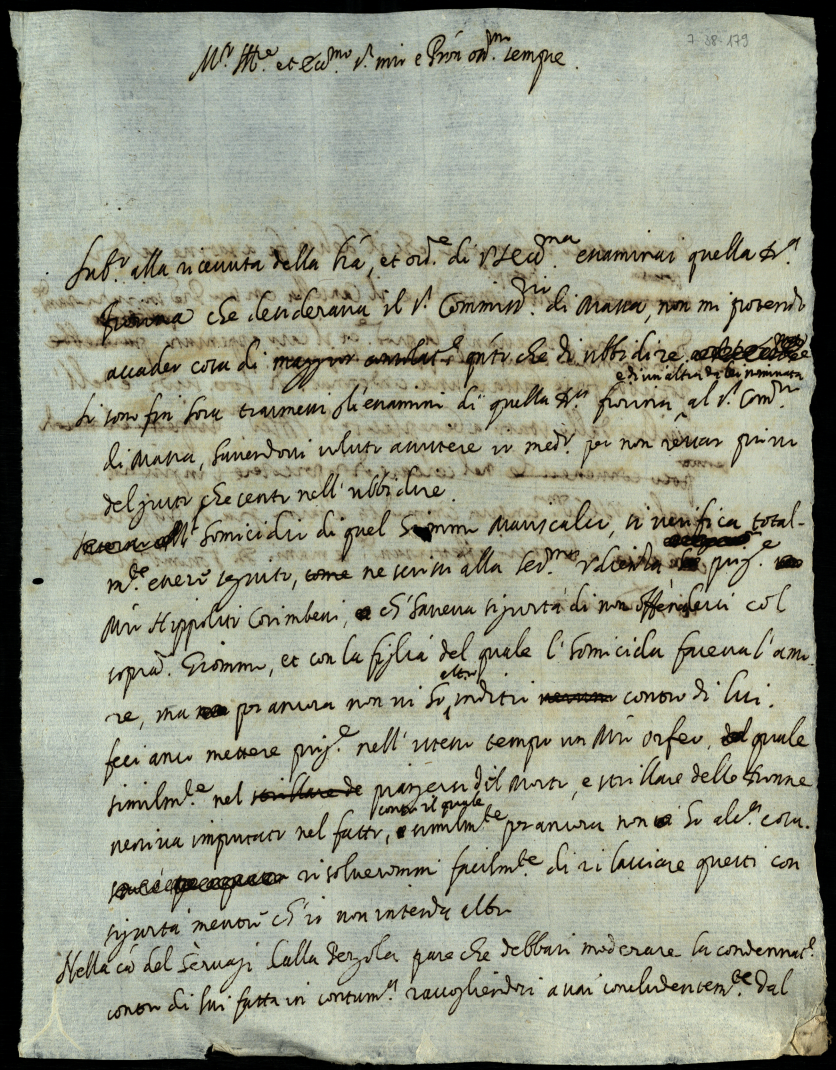 7·38·179
M.to Ill.re et Ecc.mo S.r mio e P̃rõn oss.mo sempre.
Sub.o alla ricevuta della l̃ra, et ord.e di V.S. Ecc.ma esaminai quella
che desiderava il S.r Commiss.rio di Massa, non mi potendo
accader cosa di che di ubbidire
e di un'altra da lei nominata
si sono fin hora trasmessi gli esamini di quella al S.r Com.rio
di Massa, havendovi voluto assistere io med.o per non restar privo
del gusto che sento nell'ubbidire.
homicidio di quel Giommo Maniscalco, si verifica total-
m.te essere seguito, ne scrissi alla prig.e
M.ro Hippolito Corimbeni, ch'haveva sigurtà di non offendersi col
soprad.o Giommo, et con la figlia del quale l'homicida faceva l'amo-
re, ma per ancora non vi ho altro inditio contro di lui.
feci anco mettere prig.e nell'istesso tempo un M.ro Orfeo, quale
similm.te nel piangersi del Morto, e strillare delle Donne
veniva imputato nel fatto, contro il quale similm.te per ancora non ho alc.a cosa.
risolverommi facilm.te di rilasciare questi con
sigurtà mentre ch'io non intenda altro
Nella cã del Servagi dalla Pergola pare che debbasi moderare la condennat.e
contro di lui fatta in contum.a raccogliendosi assai concludentem.te dal